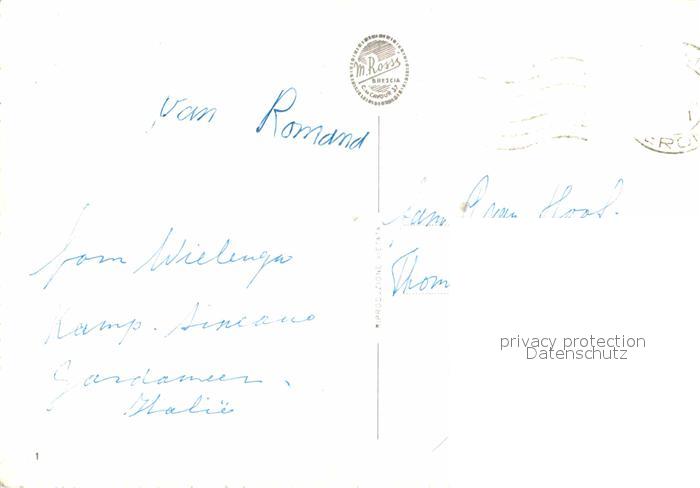 M. Rossi
BRESCIA
C. CAVOUR 37
van Romand
fam Wielenga
Kamp. Sirmione
Gardameer.
Italië
fam Hoof.
Thom
RIPRODUZIONE VIETATA
privacy protection
Datenschutz
1